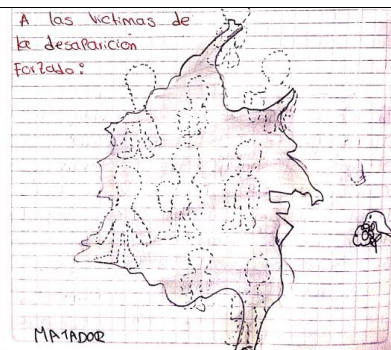 A las victimas de
la desaparición
Forzado:
MATADOR